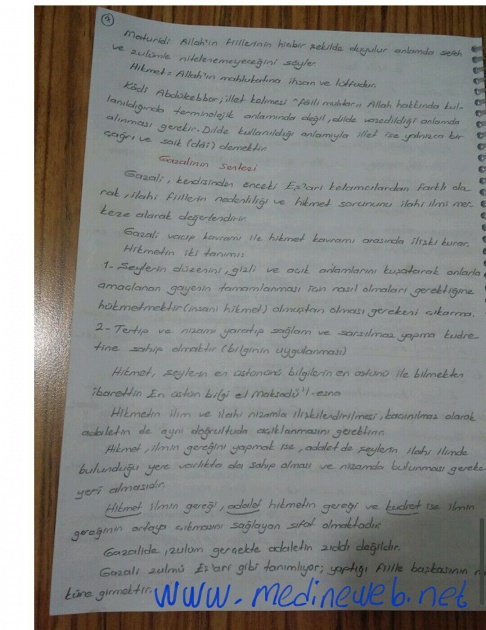 4
Maturidi: Allah'ın fiillerinin hiçbir şekilde duyulur anlamda sefeh
ve zulümle nitelenemeyeceğini söyler
Hikmet = Allah'ın mahlukatına ihsan ve lütfudur.
Kâdi Abdülcebbar; illet kelimesi "fâili muhtar" Allah hakkında kul-
lanıldığında terminolojik anlamında değil, dilde vazedildiği anlamda
alınması gerekir. Dilde kullanıldığı anlamıyla illet ise yalnızca bir
çağrı ve saik (dâi) demektir.
Gazalinin Sentezi
Gazali, kendisinden önceki Eş'ari kelamcılardan farklı ola-
rak, ilahi fiillerin nedenliliği ve hikmet sorununu ilahi ilmi mer-
keze alarak değerlendirir.
Gazali vacip kavramı ile hikmet kavramı arasında ilişki kurar.
Hikmetin iki tanımı:
1- Şeylerin düzenini, gizli ve açık anlamlarını kuşatarak onlarla
amaçlanan gayenin tamamlanması için nasıl olmaları gerektiğine
hükmetmektir (insani hikmet) olmuştan olması gerekeni çıkarma.
2- Tertip ve nizamı yaratıp sağlam ve sarsılmaz yapma kudre-
tine sahip olmaktır (bilginin uygulanması)
Hikmet, şeylerin en üstününü bilgilerin en üstünü ile bilmekten
ibarettir. En üstün bilgi el Maksadü'l-esna
Hikmetin ilim ve ilahi nizamla ilişkilendirilmesi, kaçınılmaz olarak
adaletin de aynı doğrultuda açıklanmasını gerektirir.
Hikmet, ilmin gereğini yapmak ise, adalet de şeylerin ilahi ilimde
bulunduğu yere varlıkta da sahip olması ve nizamda bulunması gereken
yeri almasıdır.
Hikmet ilmin gereği, adalet hikmetin gereği ve kudret ise ilmin
gereğinin ortaya çıkmasını sağlayan sıfat olmaktadır.
Gazalide, zulüm gerçekte adaletin zıddı değildir.
Gazali zulmü Eş'ari gibi tanımlıyor; yaptığı fiille başkasının m
küne girmektir.
www.medineweb.net